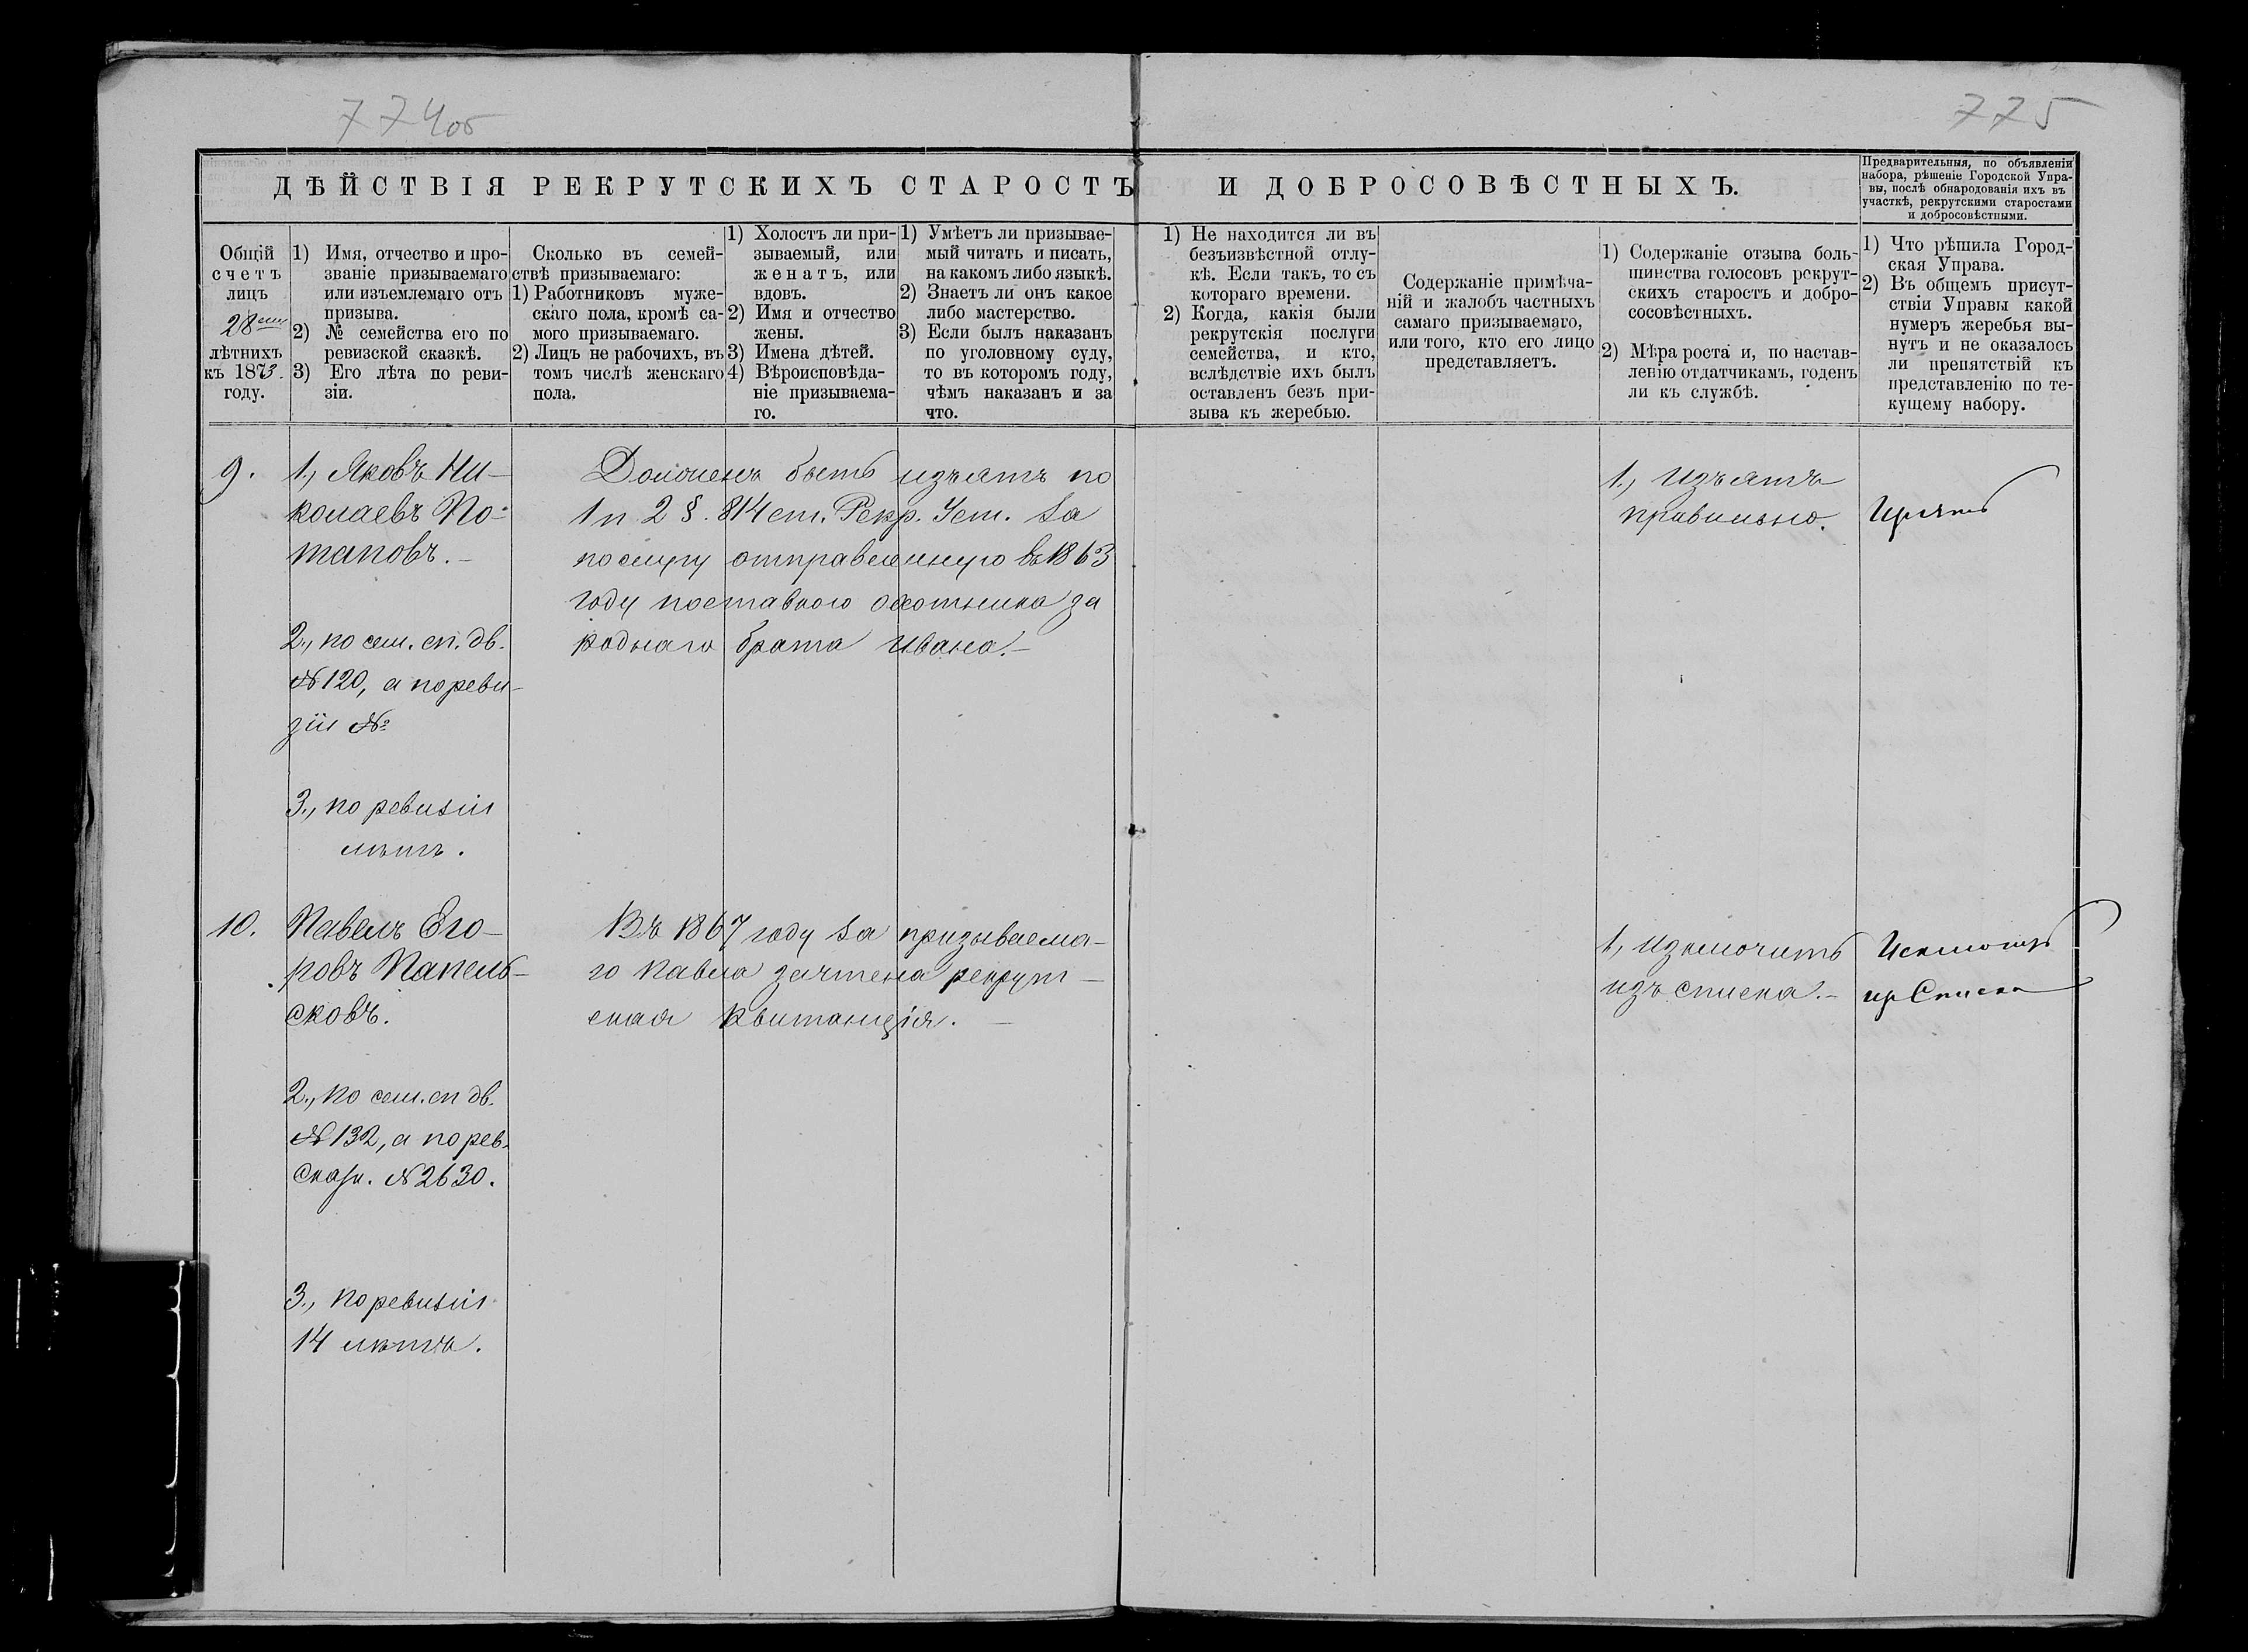 774об
775
ДѢЙСТВІЯ РЕКРУТСКИХЪ СТАРОСТЪ И ДОБРОСОВѢСТНЫХЪ.
Предварительныя, по объявленіи
набора, рѣшеніе Городской Упра-
вы, послѣ обнародованія ихъ въ
участкѣ, рекрутскими старостами
и добросовѣстными.
Общій
счетъ
лицъ
28сми
лѣтнихъ
къ 1873.
году.
1) Имя, отчество и про-
званіе призываемаго
или изъемлемаго отъ
призыва.
2) № семейства его по
ревизской сказкѣ.
3) Его лѣта по реви-
зіи.
Сколько въ семей-
ствѣ призываемаго:
1) Работниковъ муже-
скаго пола, кромѣ са-
мого призываемаго.
2) Лицъ не рабочихъ, въ
томъ числѣ женскаго
пола.
1) Холостъ ли при-
зываемый, или
женатъ, или
вдовъ.
2) Имя и отчество
жены.
3) Имена дѣтей.
4) Вѣроисповѣда-
ніе призываема-
го.
1) Умѣетъ ли призывае-
мый читать и писать,
на какомъ либо языкѣ.
2) Знаетъ ли онъ какое
либо мастерство.
3) Если былъ наказанъ
по уголовному суду,
то въ которомъ году,
чѣмъ наказанъ и за
что.
1) Не находится ли въ
безъизвѣстной отлу-
кѣ. Если такъ, то съ
котораго времени.
2) Когда, какія были
рекрутскія послуги
семейства, и кто,
вслѣдствіе ихъ былъ
оставленъ безъ при-
зыва къ жеребью.
Содержаніе примѣча-
ній и жалобъ частныхъ
самаго призываемаго,
или того, кто его лицо
представляетъ.
1) Содержаніе отзыва боль-
шинства голосовъ рекрут-
скихъ старостъ и добро-
сосовѣстныхъ.
2) Мѣра роста и, по настав-
ленію отдатчикамъ, годенъ
ли къ службѣ.
1) Что рѣшила Город-
ская Управа.
2) Въ общемъ присут-
ствіи Управы какой
нумеръ жеребья вы-
нутъ и не оказалось
ли препятствій къ
представленію по те-
кущему набору.
9.
1., Яковъ Ни-
колаевъ По-
таповъ.-
2., по сем. сп. дв.
№ 120, а по реви-
зіи №
3., по ревизіи
лѣтъ.
Долженъ быть изъятъ по
1 п 2 §. 814 ст. Рекр. Уст. за
послугу отправленную въ 1863
году поставкою охотника за
роднаго брата Ивана.-
1., Изъятъ
правильно.
Изъять
10.
Павелъ Его-
ровъ Папель-
сковъ.
2., по сем. сп дв.
№ 132, а по рев.
сказк. № 2630.
3., по ревизіи
14 лѣтъ.
Въ 1867 году за призываема-
го Павла зачтена рекрут-
ская квитанція.-
1., изключить
изъ списка.-
Исключить
из Списка